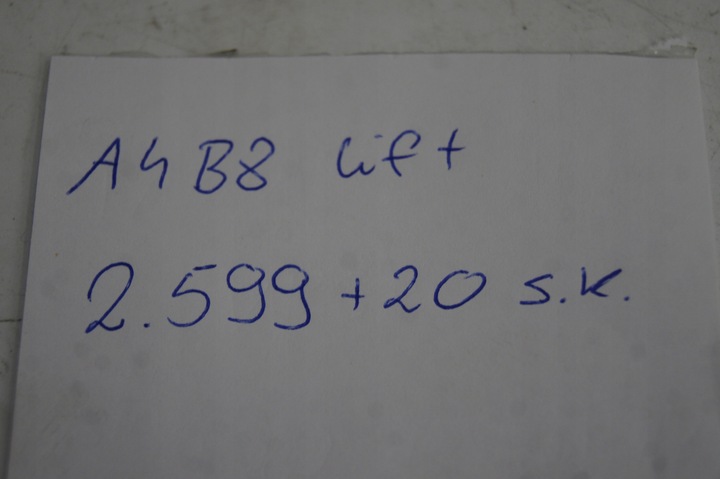 A4 B8 lift
2.599 + 20 s.k.